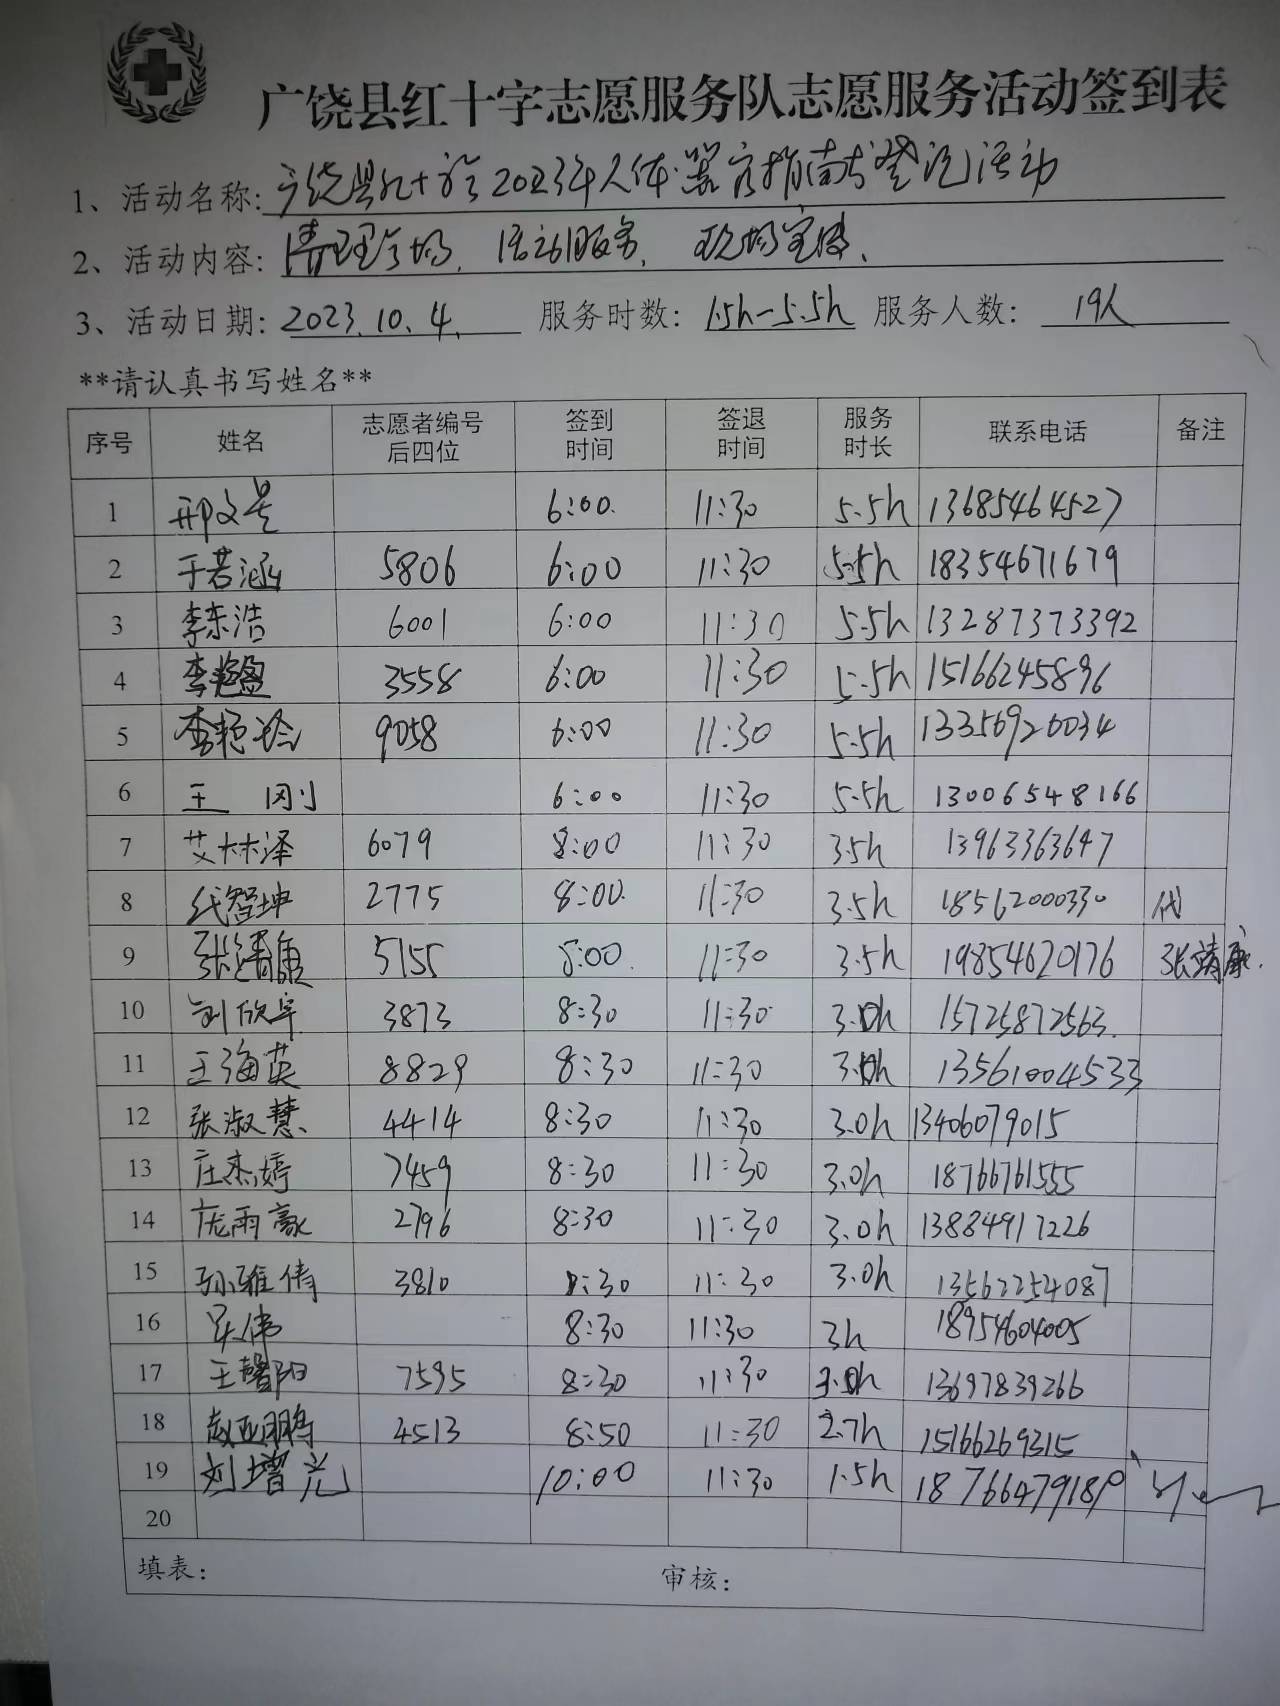 广饶县红十字志愿服务队志愿服务活动签到表
1、活动名称: 广饶县红十字会2023年人体器官捐献登记活动
2、活动内容: 清理会场、活动服务、现场宣传、
3、活动日期: 2023.10.4. 服务时数: 1.5h-5.5h 服务人数: 19人
**请认真书写姓名**
序号 姓名 志愿者编号后四位 签到时间 签退时间 服务时长 联系电话 备注
1 邢文 6:00. 11:30 5.5h 13685464527
2 于若涵 5806 6:00 11:30 5.5h 18354671679
3 李东浩 6001 6:00 11:30 5.5h 13287373392
4 李艳盈 3558 6:00 11:30 5.5h 15166245896
5 李艳玲 9058 6:00 11:30 5.5h 13356926034
6 王刚 6:00 11:30 5.5h 13006548166
7 艾林泽 6079 8:00 11:30 3.5h 13963363647
8 代智坤 2775 8:00. 11:30 3.5h 18562000330 代
9 张靖康 5155 8:00. 11:30 3.5h 19854620176 张靖康.
10 刘欣宇 3873 8:30 11:30 3.0h 15725872563.
11 王海英 8829 8:30 11:30 3.0h 13561004533
12 张淑慧 4414 8:30 11:30 3.0h 13406079015
13 庄杰婷 7459 8:30 11:30 3.0h 18766761555
14 庞雨豪 2796 8:30 11:30 3.0h 13884917226
15 孙雅倩 3810 8:30 11:30 3.0h 13562254087
16 伟 8:30 11:30 3h 18954604005
17 王馨阳 7595 8:30 11:30 3.0h 13697839266
18 赵亚鹏 4513 8:50 11:30 2.7h 15166269315
19 刘增光 10:00 11:30 1.5h 18766479189
20
填表: 审核: